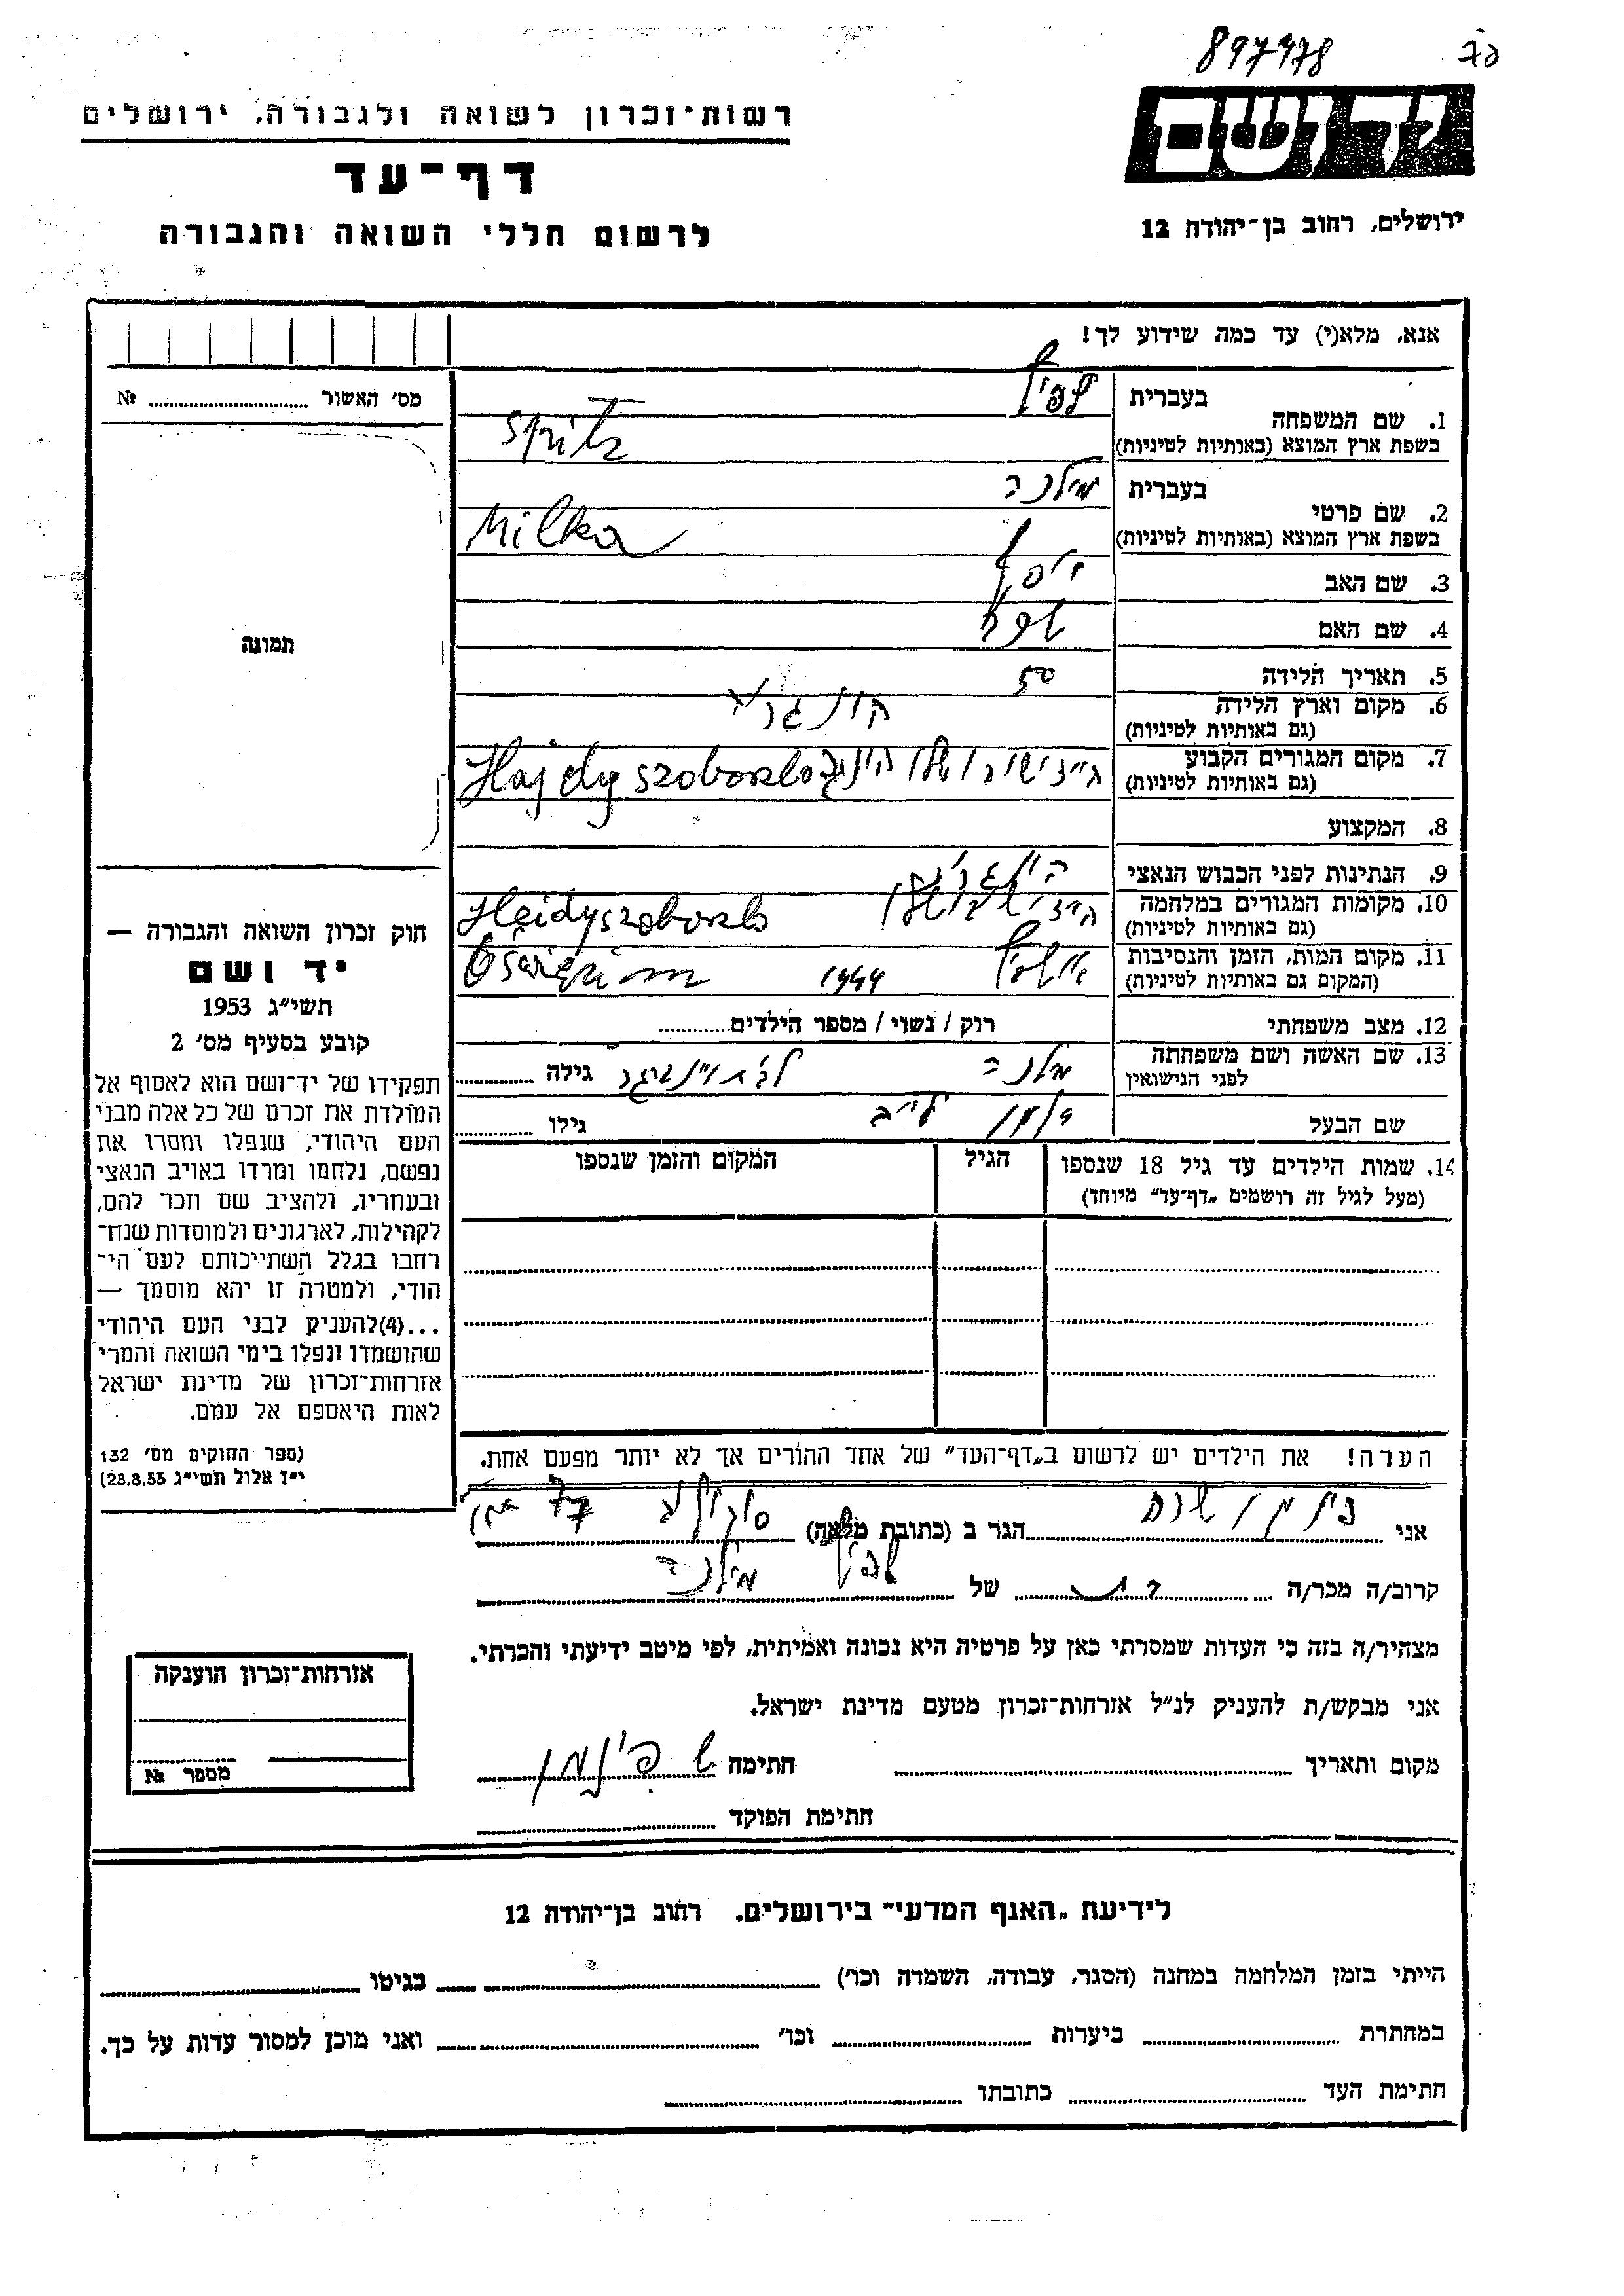 897478
יד ושם
ירושלים, רחוב בן-יהודה 12
רשות-זכרון לשואה ולגבורה, ירושלים
דף-עד
לרשום חללי השואה והגבורה
אנא, מלא(י) עד כמה שידוע לך!
מס' האשור № 
תמונה
בעברית שפיץ
1. שם המשפחה
בשפת ארץ המוצא (באותיות לטיניות) Spritz
בעברית מילכה
2. שם פרטי
בשפת ארץ המוצא (באותיות לטיניות) Milka
3. שם האב יוסף
4. שם האם
5. תאריך הלידה 50
6. מקום וארץ הלידה הונגריה
(גם באותיות לטיניות)
7. מקום המגורים הקבוע Hajdyszoboszlo
(גם באותיות לטיניות)
8. המקצוע
9. הנתינות לפני הכבוש הנאצי הונגרית
10. מקומות המגורים במלחמה Hajdyszoboszlo
(גם באותיות לטיניות)
11. מקום המות, הזמן והנסיבות 1944
(המקום גם באותיות לטיניות)
12. מצב משפחתי רוק / נשוי / מספר הילדים
13. שם האשה ושם משפחתה מילכה גילה
לפני הנישואין
שם הבעל גילו
14. שמות הילדים עד גיל 18 שנספו הגיל המקום והזמן שנספו
(מעל לגיל זה רושמים „דף-עד" מיוחד)
הערה! את הילדים יש לרשום ב„דף-העד" של אחד ההורים אך לא יותר מפעם אחת.
אני פינמן שרה הגר ב (כתובת מלאה)
קרוב/ה מכר/ה בת של שפיץ מילכה
מצהיר/ה בזה כי העדות שמסרתי כאן על פרטיה היא נכונה ואמיתית, לפי מיטב ידיעתי והכרתי.
אני מבקש/ת להעניק לנ"ל אזרחות-זכרון מטעם מדינת ישראל.
מקום ותאריך חתימה ש פינמן
חתימת הפוקד
חוק זכרון השואה והגבורה —
יד ושם
תשי"ג 1953
קובע בסעיף מס' 2
תפקידו של יד-ושם הוא לאסוף אל
המולדת את זכרם של כל אלה מבני
העם היהודי, שנפלו ומסרו את
נפשם, נלחמו ומרדו באויב הנאצי
ובעוזריו, ולהציב שם וזכר להם,
לקהילות, לארגונים ולמוסדות שנח-
רחבו בגלל השתייכותם לעם הי-
הודי, ולמטרה זו יהא מוסמך —
...(4)להעניק לבני העם היהודי
שהושמדו ונפלו בימי השואה והמרי
אזרחות-זכרון של מדינת ישראל
לאות היאספם אל עמם.
(ספר החוקים מס' 132
י"ז אלול תשי"ג 28.8.53)
אזרחות-זכרון הוענקה
מספר №
לידיעת „האגף המדעי" בירושלים. רחוב בן-יהודה 12
הייתי בזמן המלחמה במחנה (הסגר, עבודה, השמדה וכו') בגיטו
במחתרת ביערות וכו' ואני מוכן למסור עדות על כך.
חתימת העד כתובתו